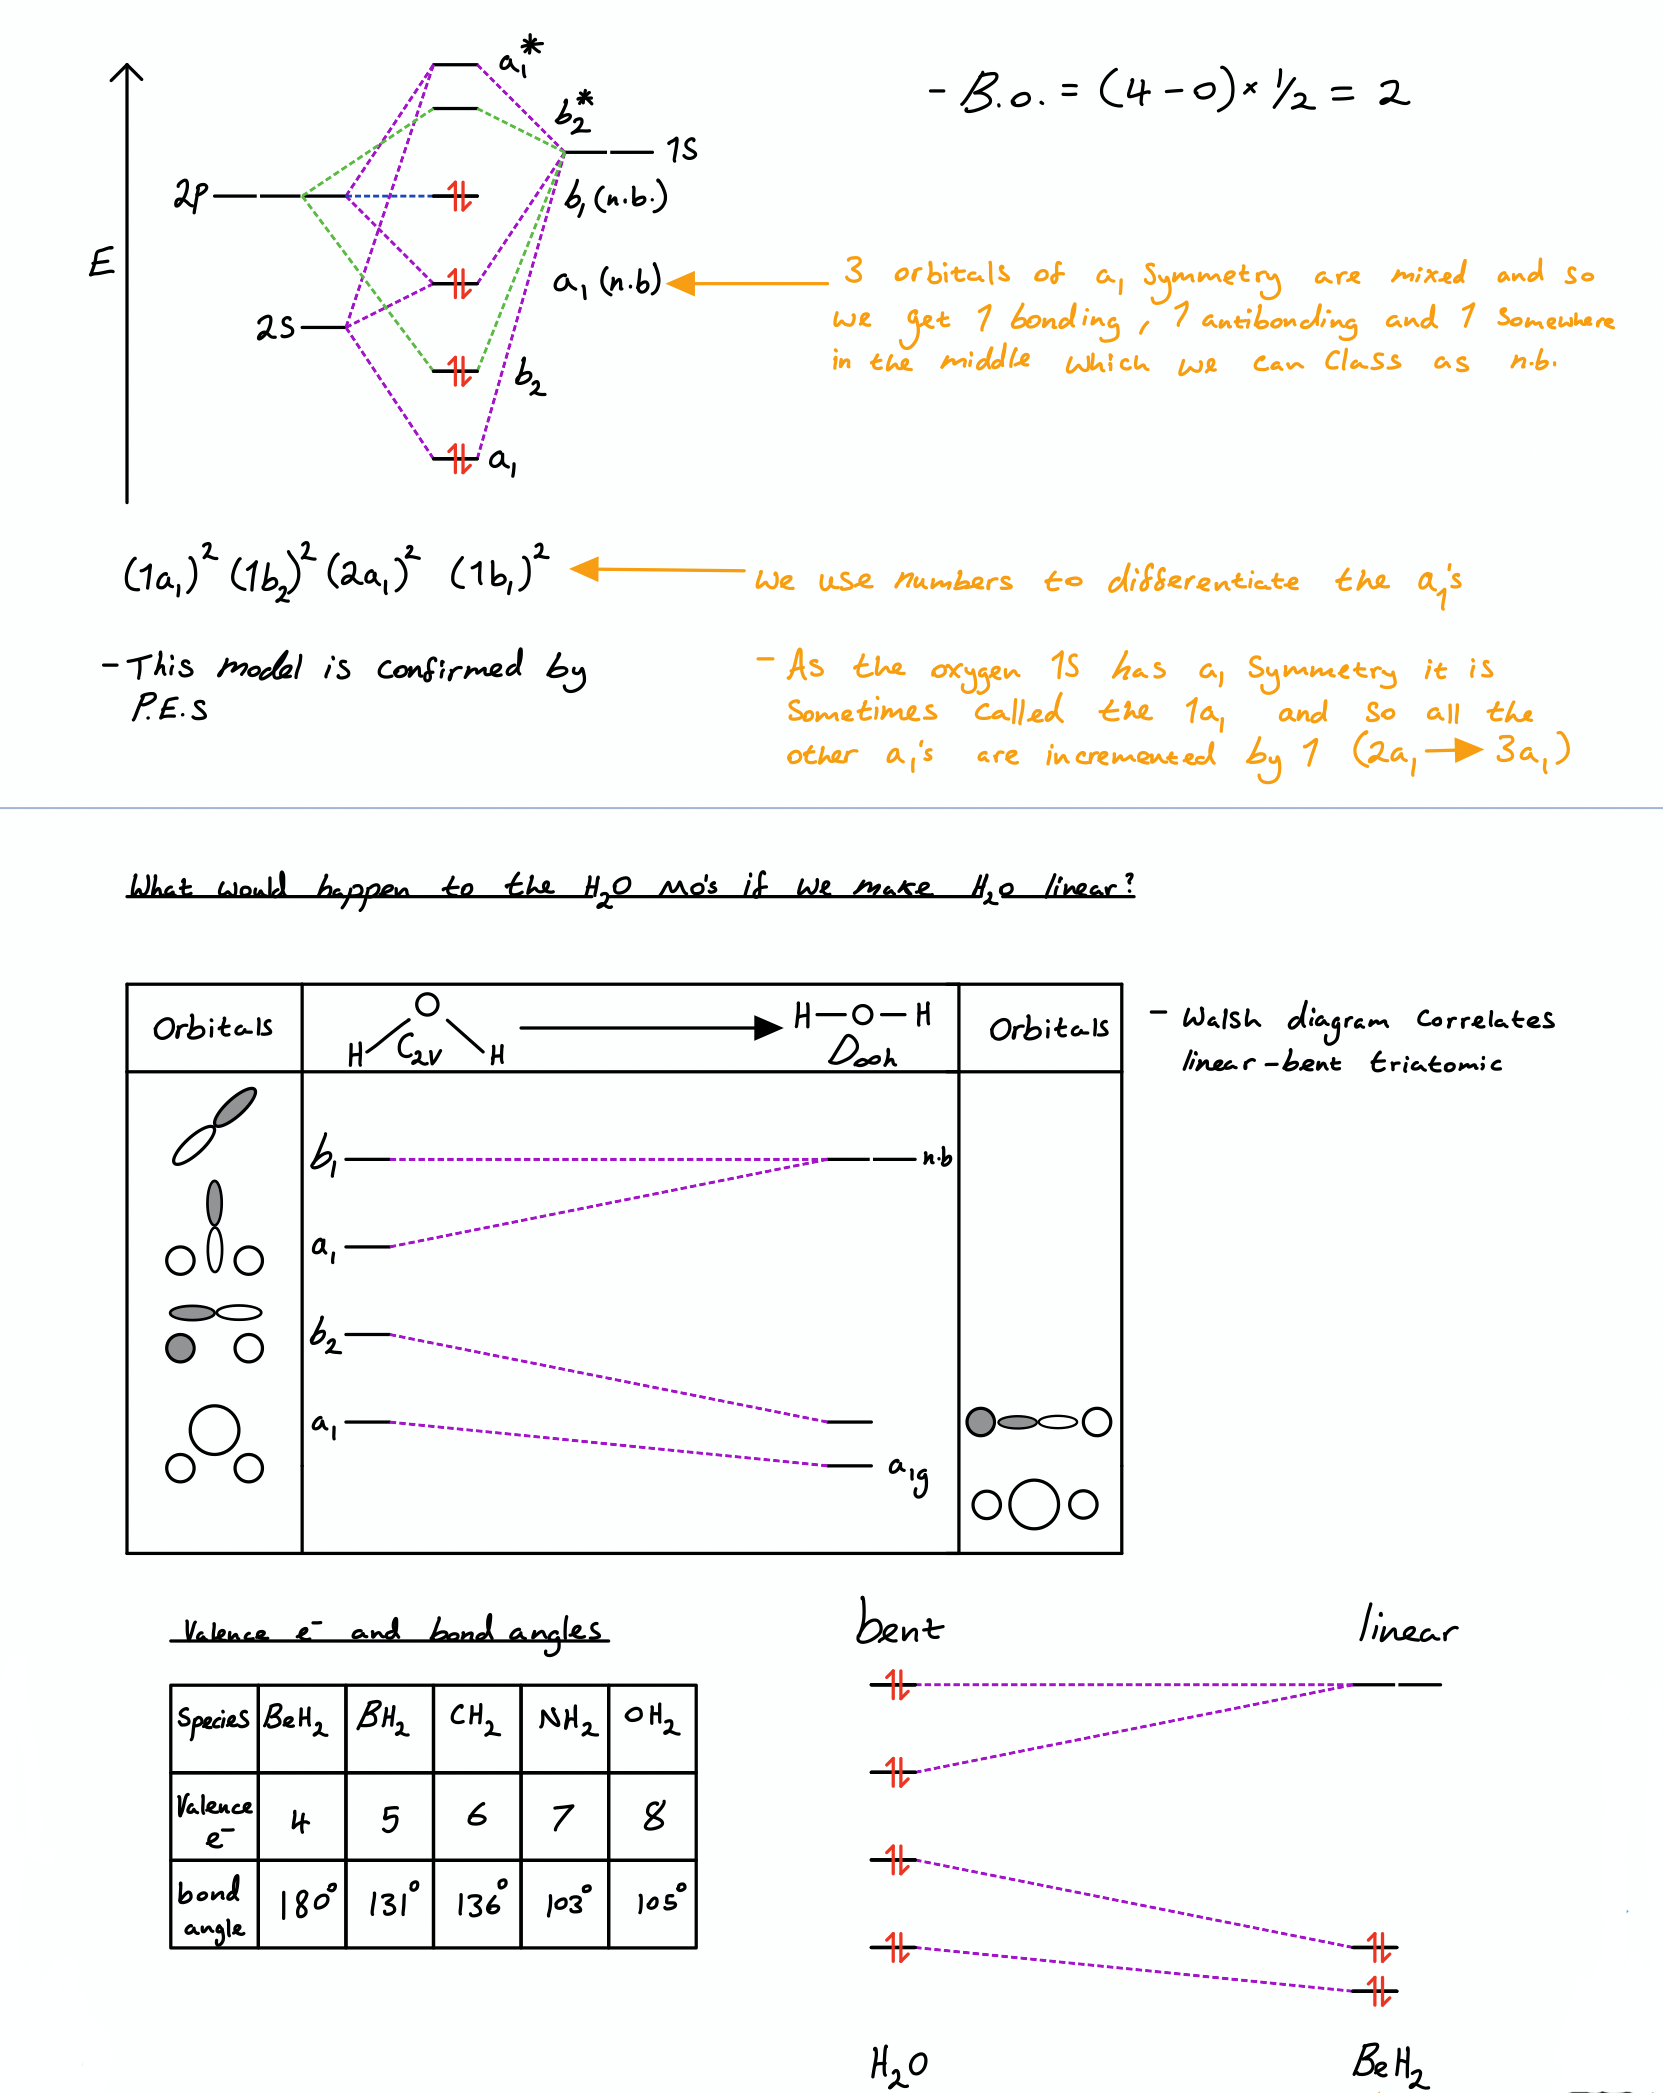 a₁*
- B.O. = (4-0)× 1/2 = 2
b₂*
1S
2P
b₁ (n.b.)
E
a₁ (n.b)
3 orbitals of a₁ symmetry are mixed and so
we get 1 bonding, 1 antibonding and 1 somewhere
in the middle which we can class as n.b.
2S
b₂
a₁
(1a₁)² (1b₂)² (2a₁)² (1b₁)²
we use numbers to differentiate the a₁'s
- This model is confirmed by
P.E.S
- As the oxygen 1S has a₁ symmetry it is
sometimes called the 1a₁ and so all the
other a₁'s are incremented by 1 (2a₁ → 3a₁)
What would happen to the H₂O MO's if we make H₂O linear?
Orbitals
O
H H
C₂v
H-O-H
D∞h
Orbitals
- Walsh diagram correlates
linear-bent triatomic
b₁
n.b
a₁
b₂
a₁
a₁g
Valence e⁻ and bond angles
Species BeH₂ BH₂ CH₂ NH₂ OH₂
Valence e⁻ 4 5 6 7 8
bond angle 180° 131° 136° 103° 105°
bent
linear
H₂O
BeH₂